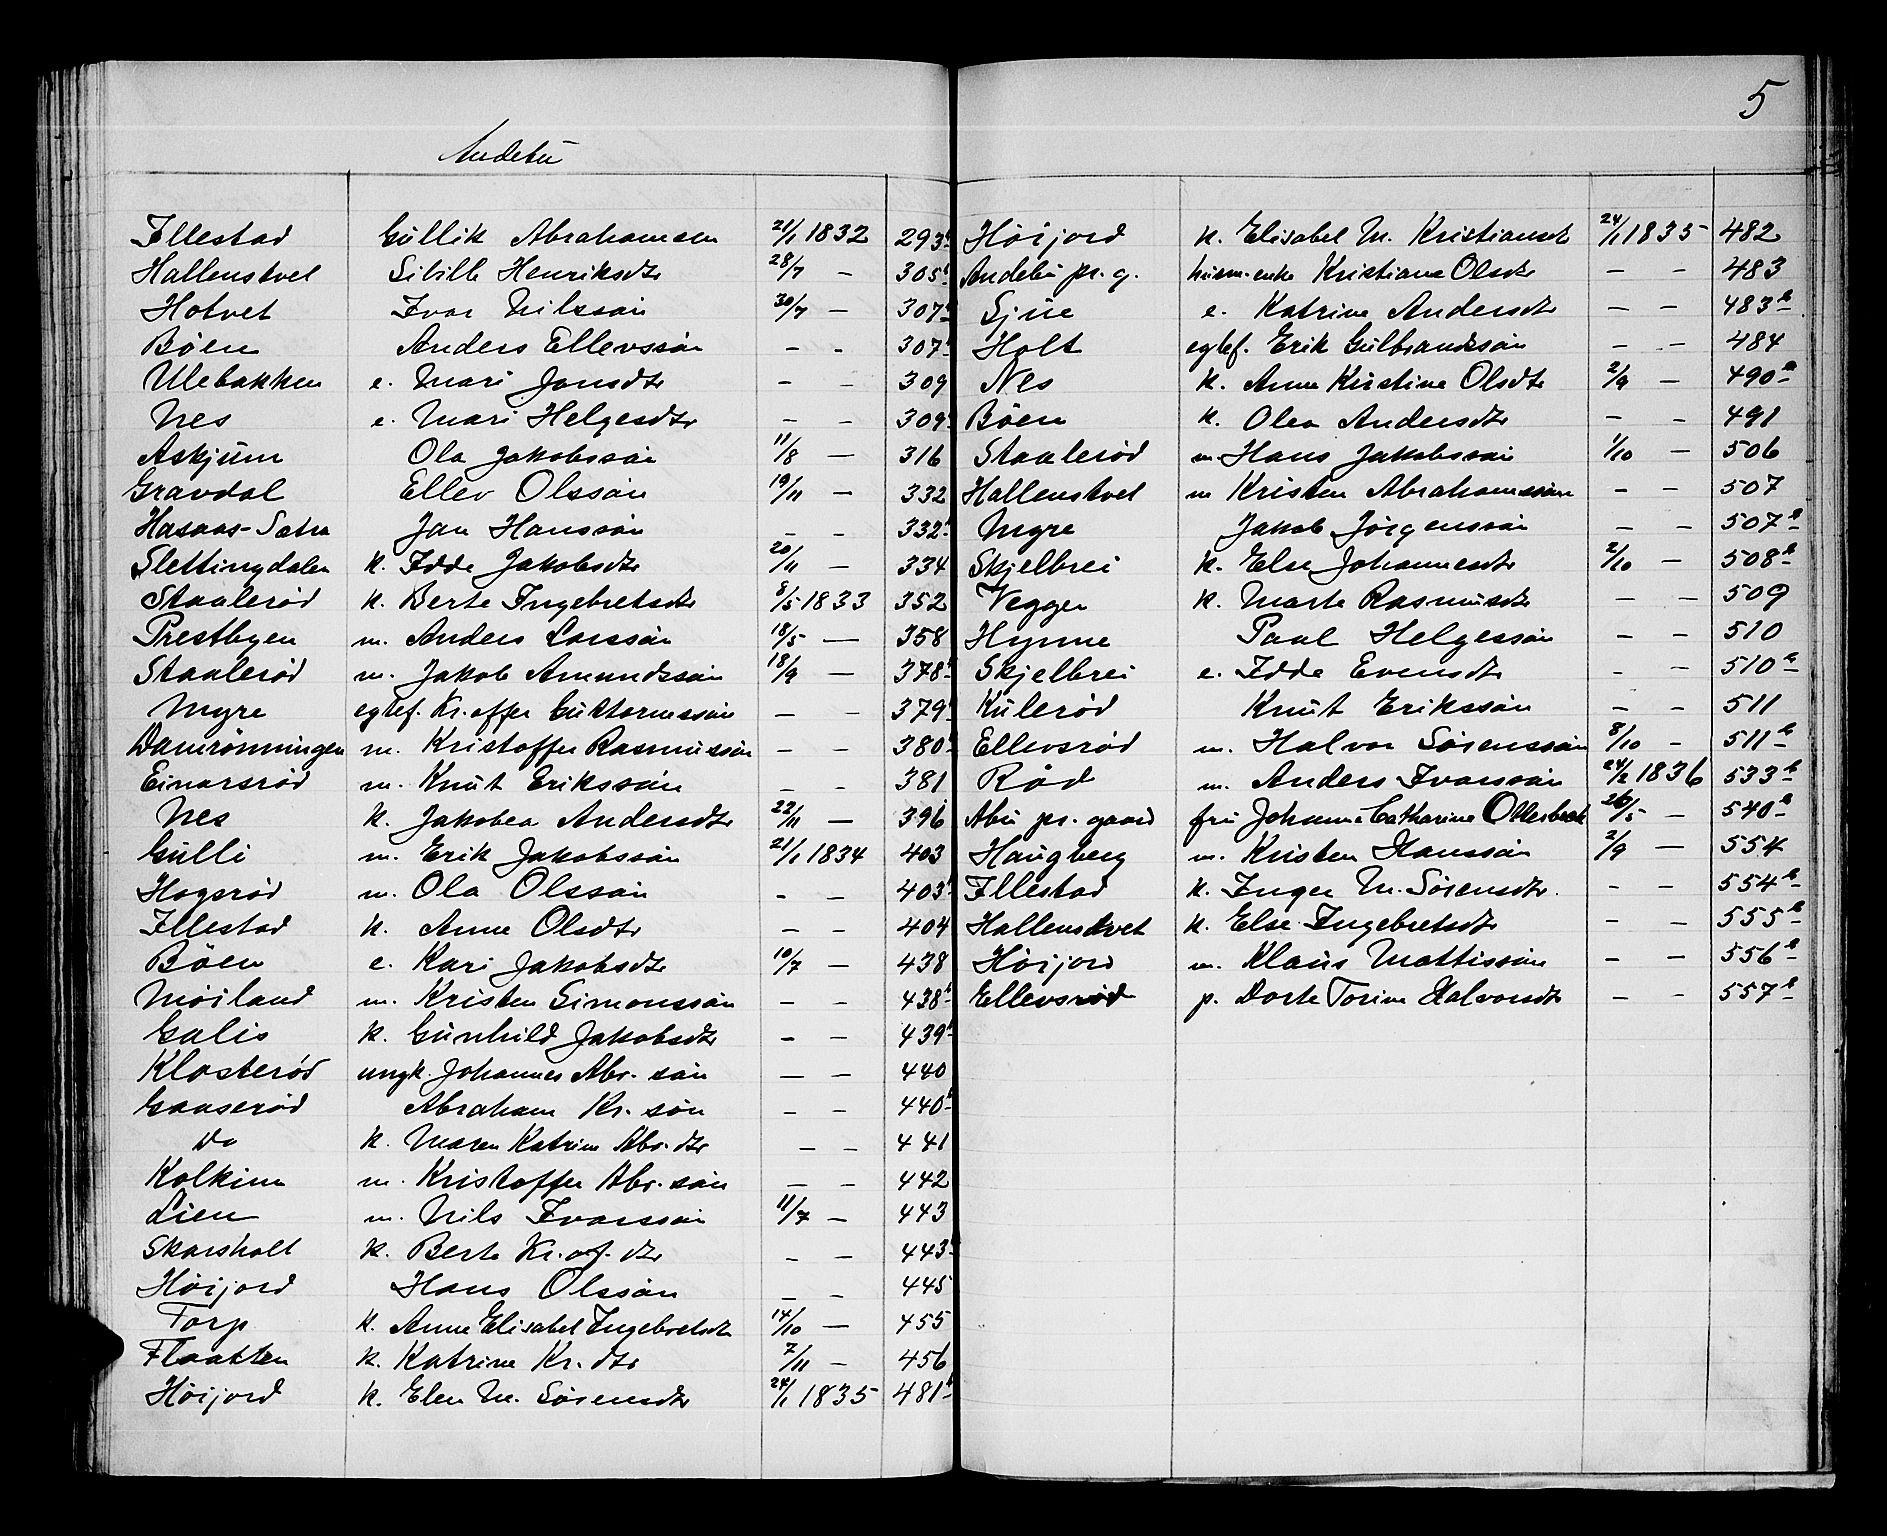 5
Andebu
Illestad Gullik Abrahamsen 21/1 1832 293b
Hallenstvet Sibille Henriksdtr 28/7 – 305b
Hotvet Ivar Nilssøn 30/7 – 307b
Bøen Anders Ellevssøn – – 307b
Ulebakken e. Mari Jonsdtr – – 309
Nes e. Mari Helgesdtr – – 309b
Askjum Ola Jakobssøn 11/8 – 316
Gravdal Ellev Olssøn 19/11 – 332
Hasaas-Sætra Jan Hanssøn – – 332b
Slettingdalen k. Idde Jakobsdtr 20/11 – 334
Staalerød k. Berte Ingebretsdtr 8/5 1833 352
Prestbyen m. Anders Larssøn 18/5 – 358
Staalerød m. Jakob Amundssøn 18/9 – 378b
Myre egtef. Kr.offer Guttormssøn – – 379b
Damrønningen m. Kristoffer Rasmussøn – – 380b
Einarsrød m. Knut Erikssøn – – 381
Nes k. Jakobea Andersdtr 22/11 – 396
Gulli m. Erik Jakobssøn 21/1 1834 403
Hogsrød m. Ola Olssøn – – 403b
Illestad k. Anne Olsdtr – – 404
Bøen e. Kari Jakobsdtr 10/7 – 438
Møiland m. Kristen Simonssøn – – 438b
Galis k. Gunhild Jakobsdtr – – 439b
Klosterød ungk. Johannes Abr. søn – – 440
Gaaserød Abraham Kr. søn – – 440b
Do k. Maren Katrine Abr. dtr – – 441
Kolkinn m. Kristoffer Abr. søn – – 442
Lien m. Nils Ivarssøn 11/7 – 443
Skarsholt k. Berte Kr.of. dtr – – 443b
Høijord Hans Olssøn – – 445
Torp k. Anne Elisabet Ingebretsdtr 14/10 – 455
Flaatten k. Katrine Kr. dtr 7/11 – 456
Høijord k. Elen M. Sørensdtr 24/1 1835 481b
Høijord k. Elisabet M. Kristiansdt 24/1 1835 482
Andebu pr. g. husm.enke Kristiane Olsdtr – – 483
Sjue e. Katrine Andersdtr – – 483b
Holt egtef. Erik Gulbrandssøn – – 484
Nes k. Anne Kirstine Olsdtr 2/9 – 490b
Bøen k. Olea Andersdtr – – 491
Staalerød m. Hans Jakobssøn 1/10 – 506
Hallenstvet m Kristen Abrahamssøn – – 507
Myre Jakob Jørgenssøn – – 507b
Skjelbrei k. Else Johannesdtr 2/10 – 508b
Vegger k. Marte Rasmusdtr – – 509
Hynne Paal Helgessøn – – 510
Skjelbrei e. Idde Evensdtr – – 510b
Kulerød Knut Erikssøn – – 511
Ellevsrød m. Halvor Sørenssøn 8/10 – 511b
Rød m. Anders Ivarssøn 24/2 1836 533b
Abu pr. gaard fru Johanne Catharine Otterbech 26/5 – 540b
Haugberg m. Kristen Hanssøn 2/9 – 554
Illestad k. Inger M. Sørensdtr. – – 554b
Hallenstvet k. Else Ingebretsdtr – – 555b
Høijord m. Klaus Mattissøn – – 556b
Ellevsrød p. Dorte Torine Halvorsdtr – – 557b